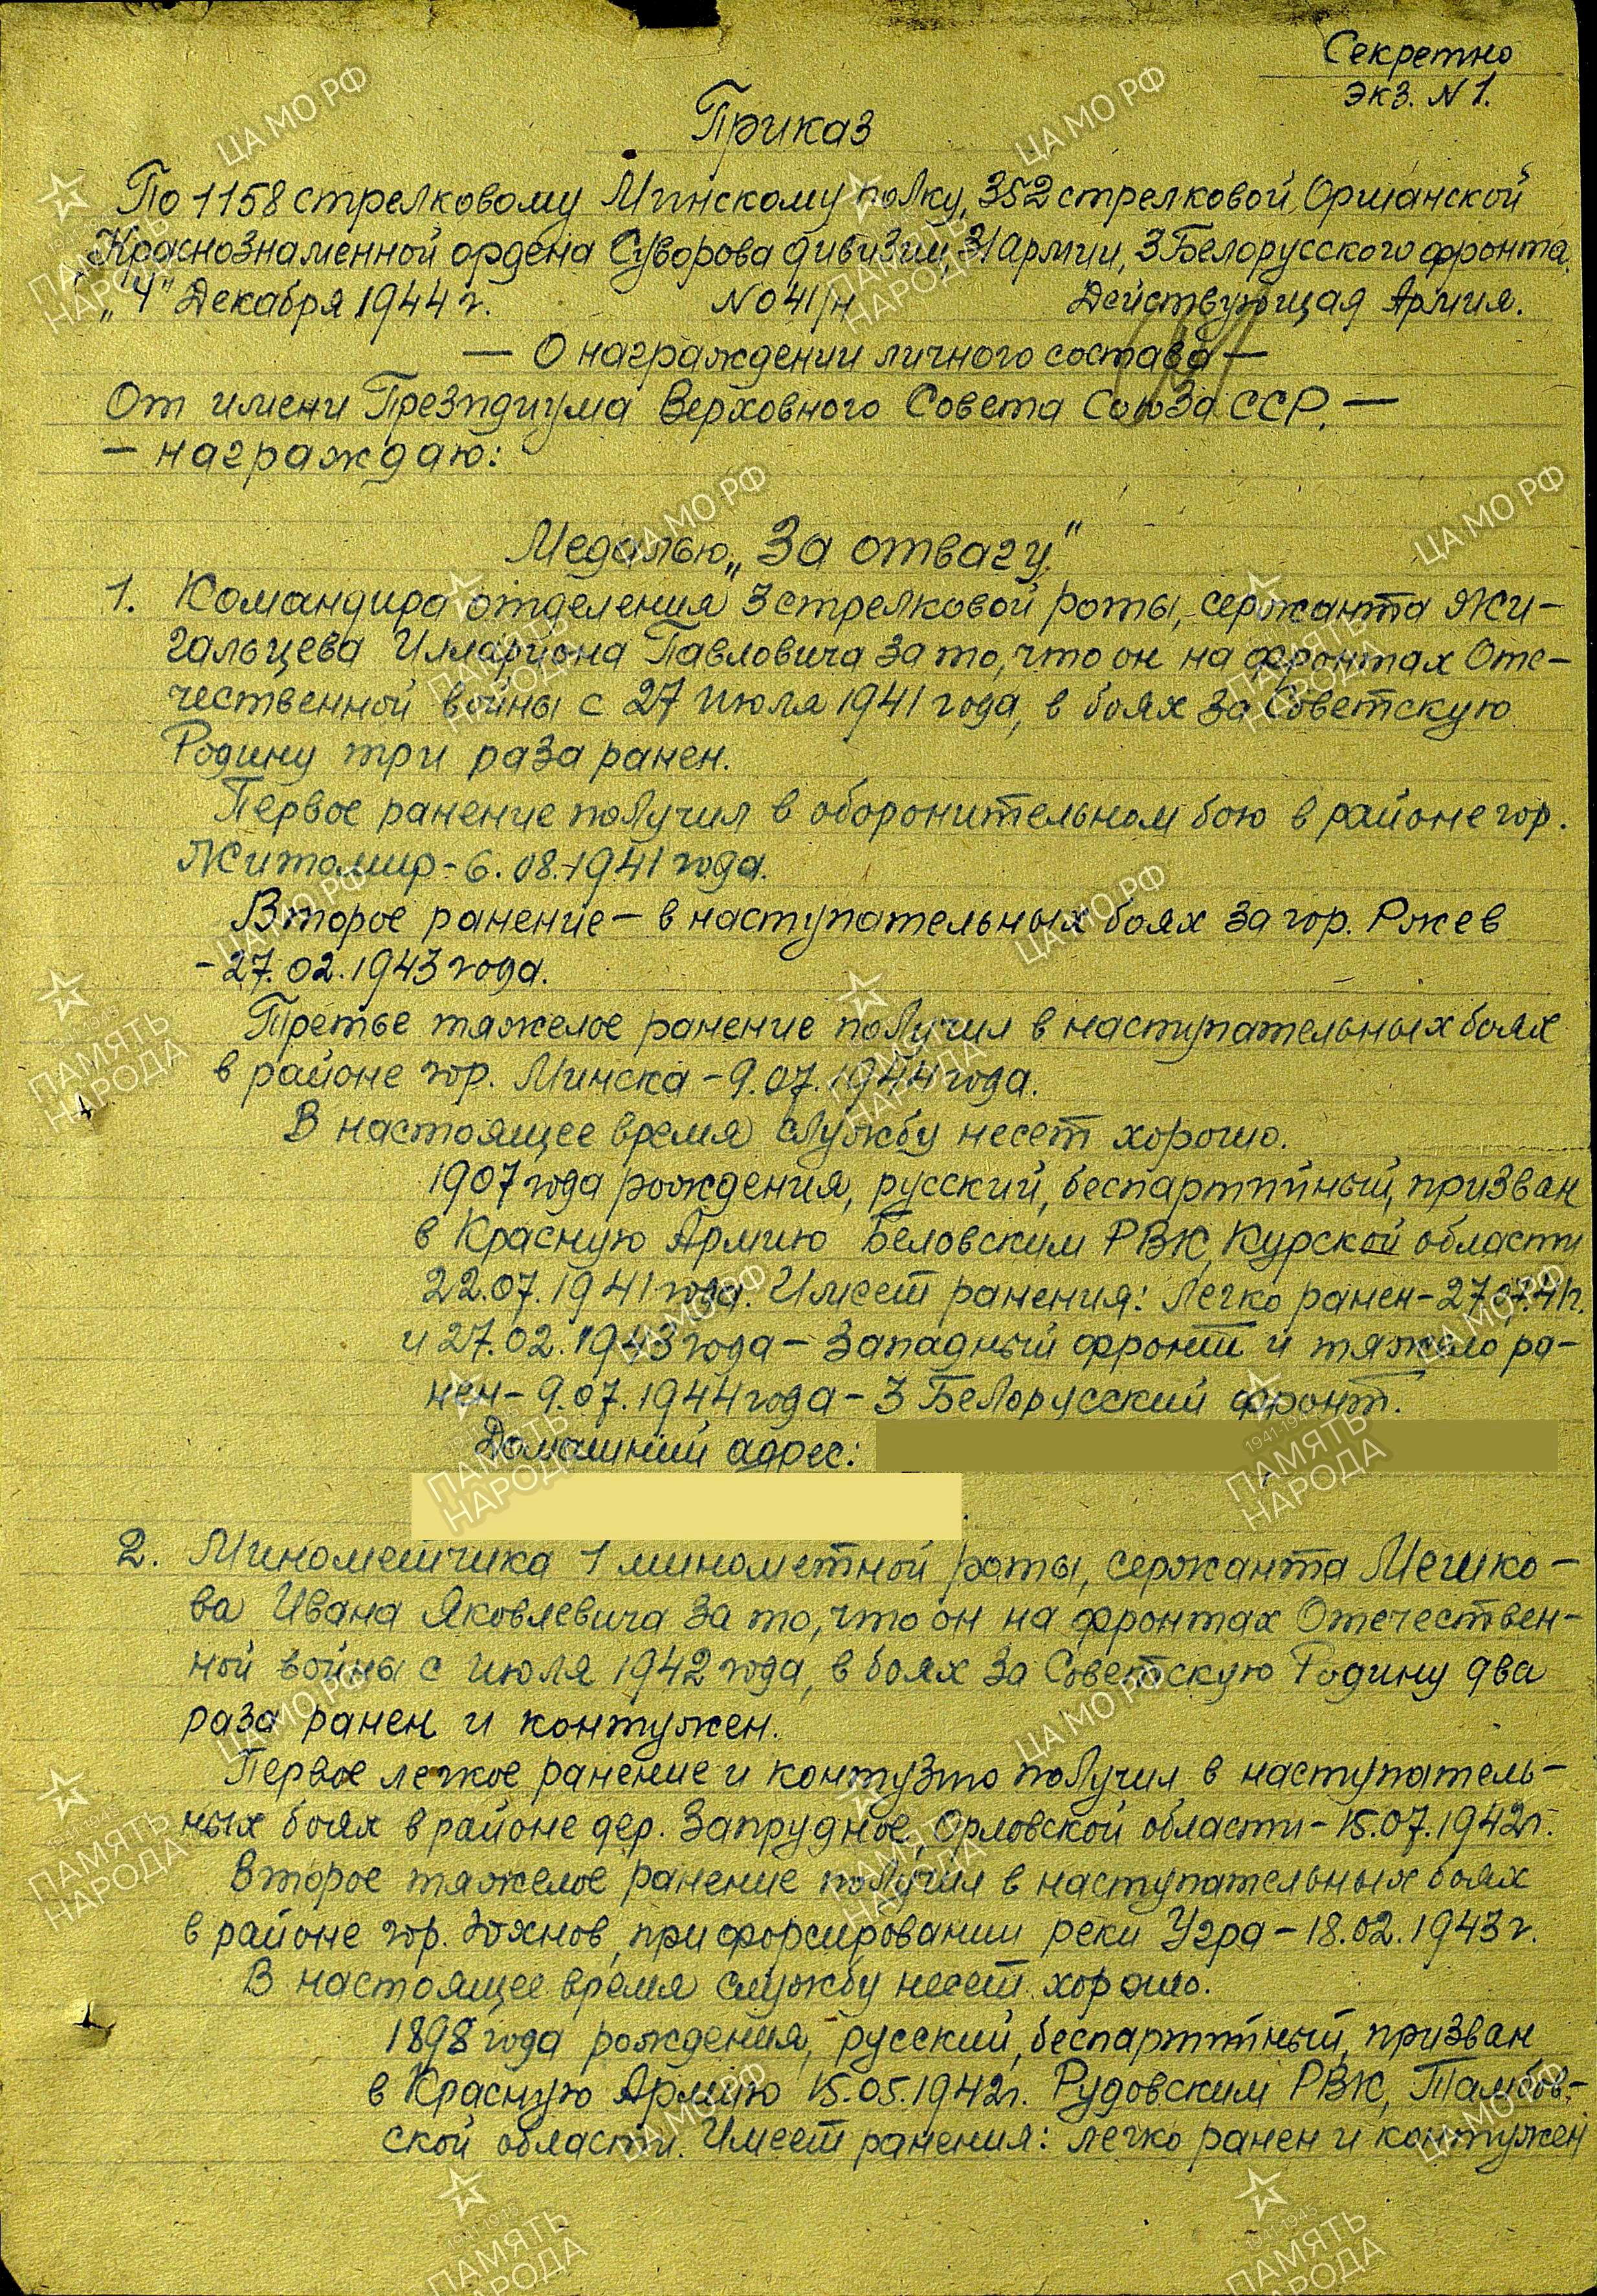 Секретно
Экз. N 1.
Приказ
По 1158 стрелковому Минскому полку, 352 стрелковой, Оршанской
Краснознаменной ордена Суворова дивизии, 31 Армии, 3 Белорусского фронта.
„4" Декабря 1944 г. No 41/н Действующая Армия.
— О награждении личного состава —
От имени Президиума Верховного Совета Союза ССР. —
— награждаю:
Медалью „За отвагу."
1. Командира отделения 3 стрелковой роты, сержанта Жи-
гальцева Иллариона Павловича за то, что он на фронтах Оте-
чественной войны с 27 июля 1941 года, в боях за Советскую
Родину три раза ранен.
Первое ранение получил в оборонительном бою в районе гор.
Житомир - 6.08.1941 года.
Второе ранение - в наступательных боях за гор. Ржев
- 27.02.1943 года.
Третье тяжелое ранение получил в наступательных боях
в районе гор. Минска - 9.07.1944 года.
В настоящее время службу несет хорошо.
1907 года рождения, русский, беспартийный, призван
в Красную Армию Беловским РВК, Курской области
22.07.1941 года. Имеет ранения: Легко ранен - 27.07.41 г.
и 27.02.1943 года - Западный фронт и тяжело ра-
нен - 9.07.1944 года - 3 Белорусский фронт.
Домашний адрес:
2. Минометчика 1 минометной роты, сержанта Мешко-
ва Ивана Яковлевича за то, что он на фронтах Отечествен-
ной войны с июля 1942 года, в боях за Советскую Родину два
раза ранен и контужен.
Первое легкое ранение и контузию получил в наступатель-
ных боях в районе дер. Запрудное, Орловской области - 15.07.1942 г.
Второе тяжелое ранение получил в наступательных боях
в районе гор. Юхнов, при форсировании реки Угра - 18.02.1943 г.
В настоящее время службу несет хорошо.
1898 года рождения, русский, беспартийный, призван
в Красную Армию 15.05.1942 г. Рудовским РВК, Тамбов-
ской области. Имеет ранения: легко ранен и контужен
ЦА МО РФ
1941-1945
ПАМЯТЬ
НАРОДА